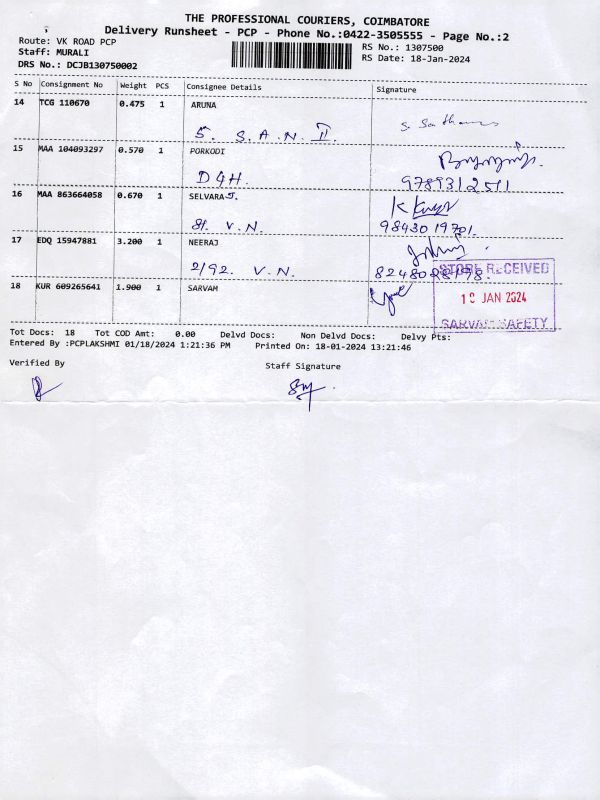 THE PROFESSIONAL COURIERS, COIMBATORE
Delivery Runsheet - PCP - Phone No.:0422-3505555 - Page No.:2
Route: VK ROAD PCP
RS No.: 1307500
Staff: MURALI
RS Date: 18-Jan-2024
DRS No.: DCJB130750002
S No Consignment No Weight PCS Consignee Details Signature
14 TCG 110670 0.475 1 ARUNA
5. S.A.N. II
15 MAA 104093297 0.570 1 PORKODI
D4H. 9789312511
16 MAA 863664058 0.670 1 SELVARAJ.
81. V.N. 9843019701.
17 EDQ 15947881 3.200 1 NEERAJ
2/92. V.N. 8248028198.
18 KUR 609265641 1.900 1 SARVAM
STORE RECEIVED
18 JAN 2024
SARVAM SAFETY
Tot Docs: 18 Tot COD Amt: 0.00 Delvd Docs: Non Delvd Docs: Delvy Pts:
Entered By :PCPLAKSHMI 01/18/2024 1:21:36 PM Printed On: 18-01-2024 13:21:46
Verified By Staff Signature